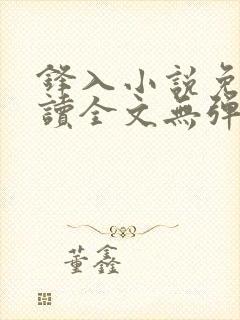 鋒入小說免
讀全文無彈
董鑫